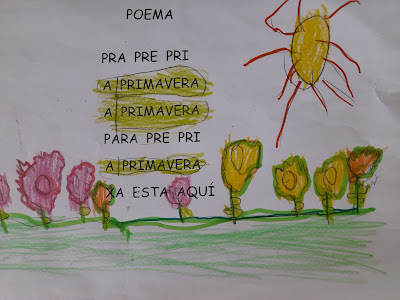 POEMA
PRA PRE PRI
A PRIMAVERA
A PRIMAVERA
PARA PRE PRI
A PRIMAVERA
XA ESTA AQUÍ